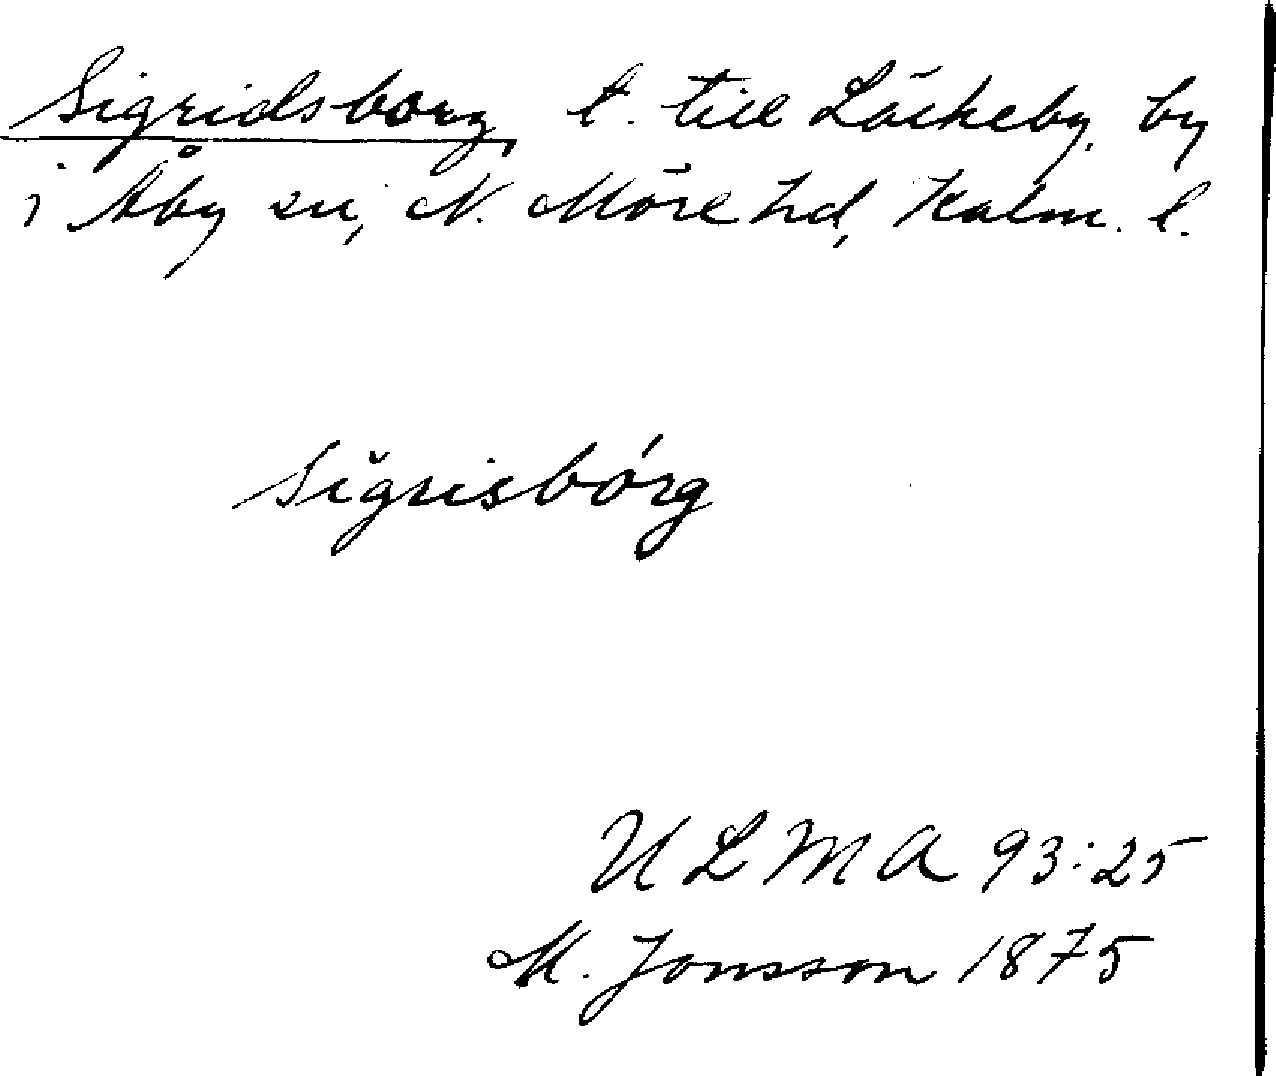 Sigridsborg, t. till Läckeby, by
i Åby sn, N. Möre hd, Kalm. l.
Sĭgrisbórg
ULMA 93:25
M. Jonsson 1875